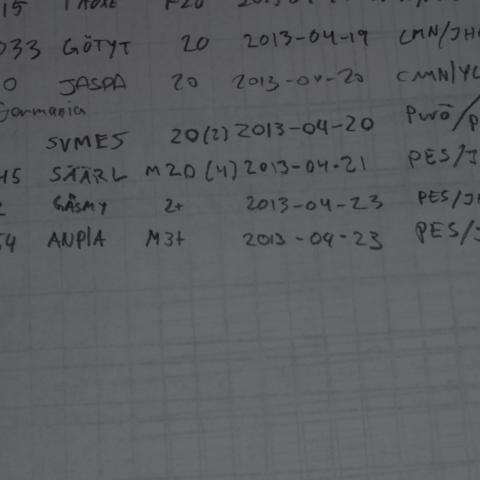 15 F20
033 GÖTYT 20 2013-04-19 CMN/JH
0 JASPA 20 2013-04-20 CMN/YL
Germania
SVMES 20(2) 2013-04-20
45 SÄÄRL M20 (4) 2013-04-21 PES/J
2 GÄSMY 2+ 2013-04-23 PES/JH
54 ANPLA M3+ 2013-04-23 PES/J